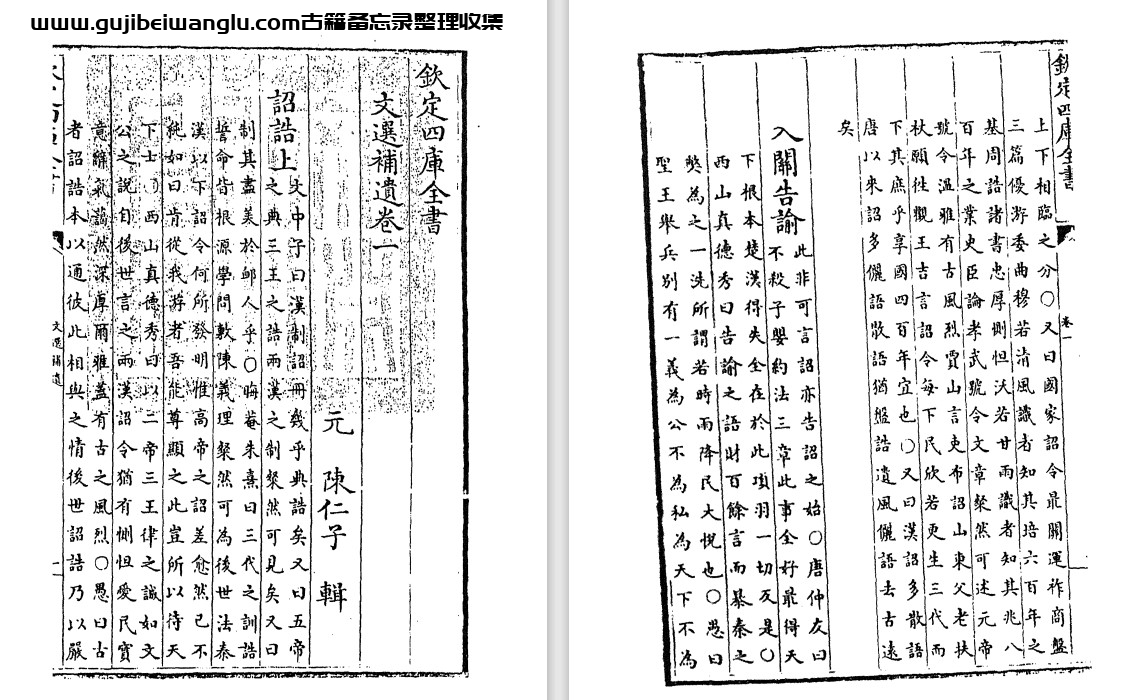 www.gujibeiwanglu.com古籍备忘录整理收集
欽定四庫全書
文選補遺卷一
元 陳仁子 輯
詔誥上 文中子曰漢制詔冊幾乎典誥矣又曰五帝
之典三王之誥兩漢之制粲然可見矣又曰
制其盡美於卹人乎○晦菴朱熹曰三代之訓誥
誓命皆根源學問敷陳義理粲然可為後世法秦
漢以下詔令何所發明惟高帝之詔差愈然已不
純如曰肯從我游者吾能尊顯之此豈所以待天
下士○西山真德秀曰以二帝三王律之誠如文
公之說自後世言之兩漢詔令猶有惻怛愛民實
意辭氣藹然深厚爾雅蓋有古之風烈○愚曰古
者詔誥本以通彼此相與之情後世詔誥乃以嚴
文選補遺
欽定四庫全書
卷一
上下相臨之分○又曰國家詔令最關運祚商盤
三篇優游委曲穆若清風識者知其培六百年之
基周誥諸書忠厚惻怛沃若甘雨識者知其兆八
百年之業史臣論孝武號令文章粲然可述元帝
號令溫雅有古風烈賈山言吏布詔山東父老扶
杖願徃觀王吉言詔令每下民欣若更生三代而
下其庶乎享國四百年宜也○又曰漢詔多散語
唐以來詔多儷語散語猶盤誥遺風儷語去古遠
矣
入關告諭 此非可言詔亦告詔之始○唐仲友曰
不殺子嬰約法三章此事全好最得天
下根本楚漢得失全在於此項羽一切反是○
西山真德秀曰告諭之語財百餘言而暴秦之
獘為之一洗所謂若時雨降民大悅也○愚曰
聖王舉兵別有一義為公不為私為天下不為